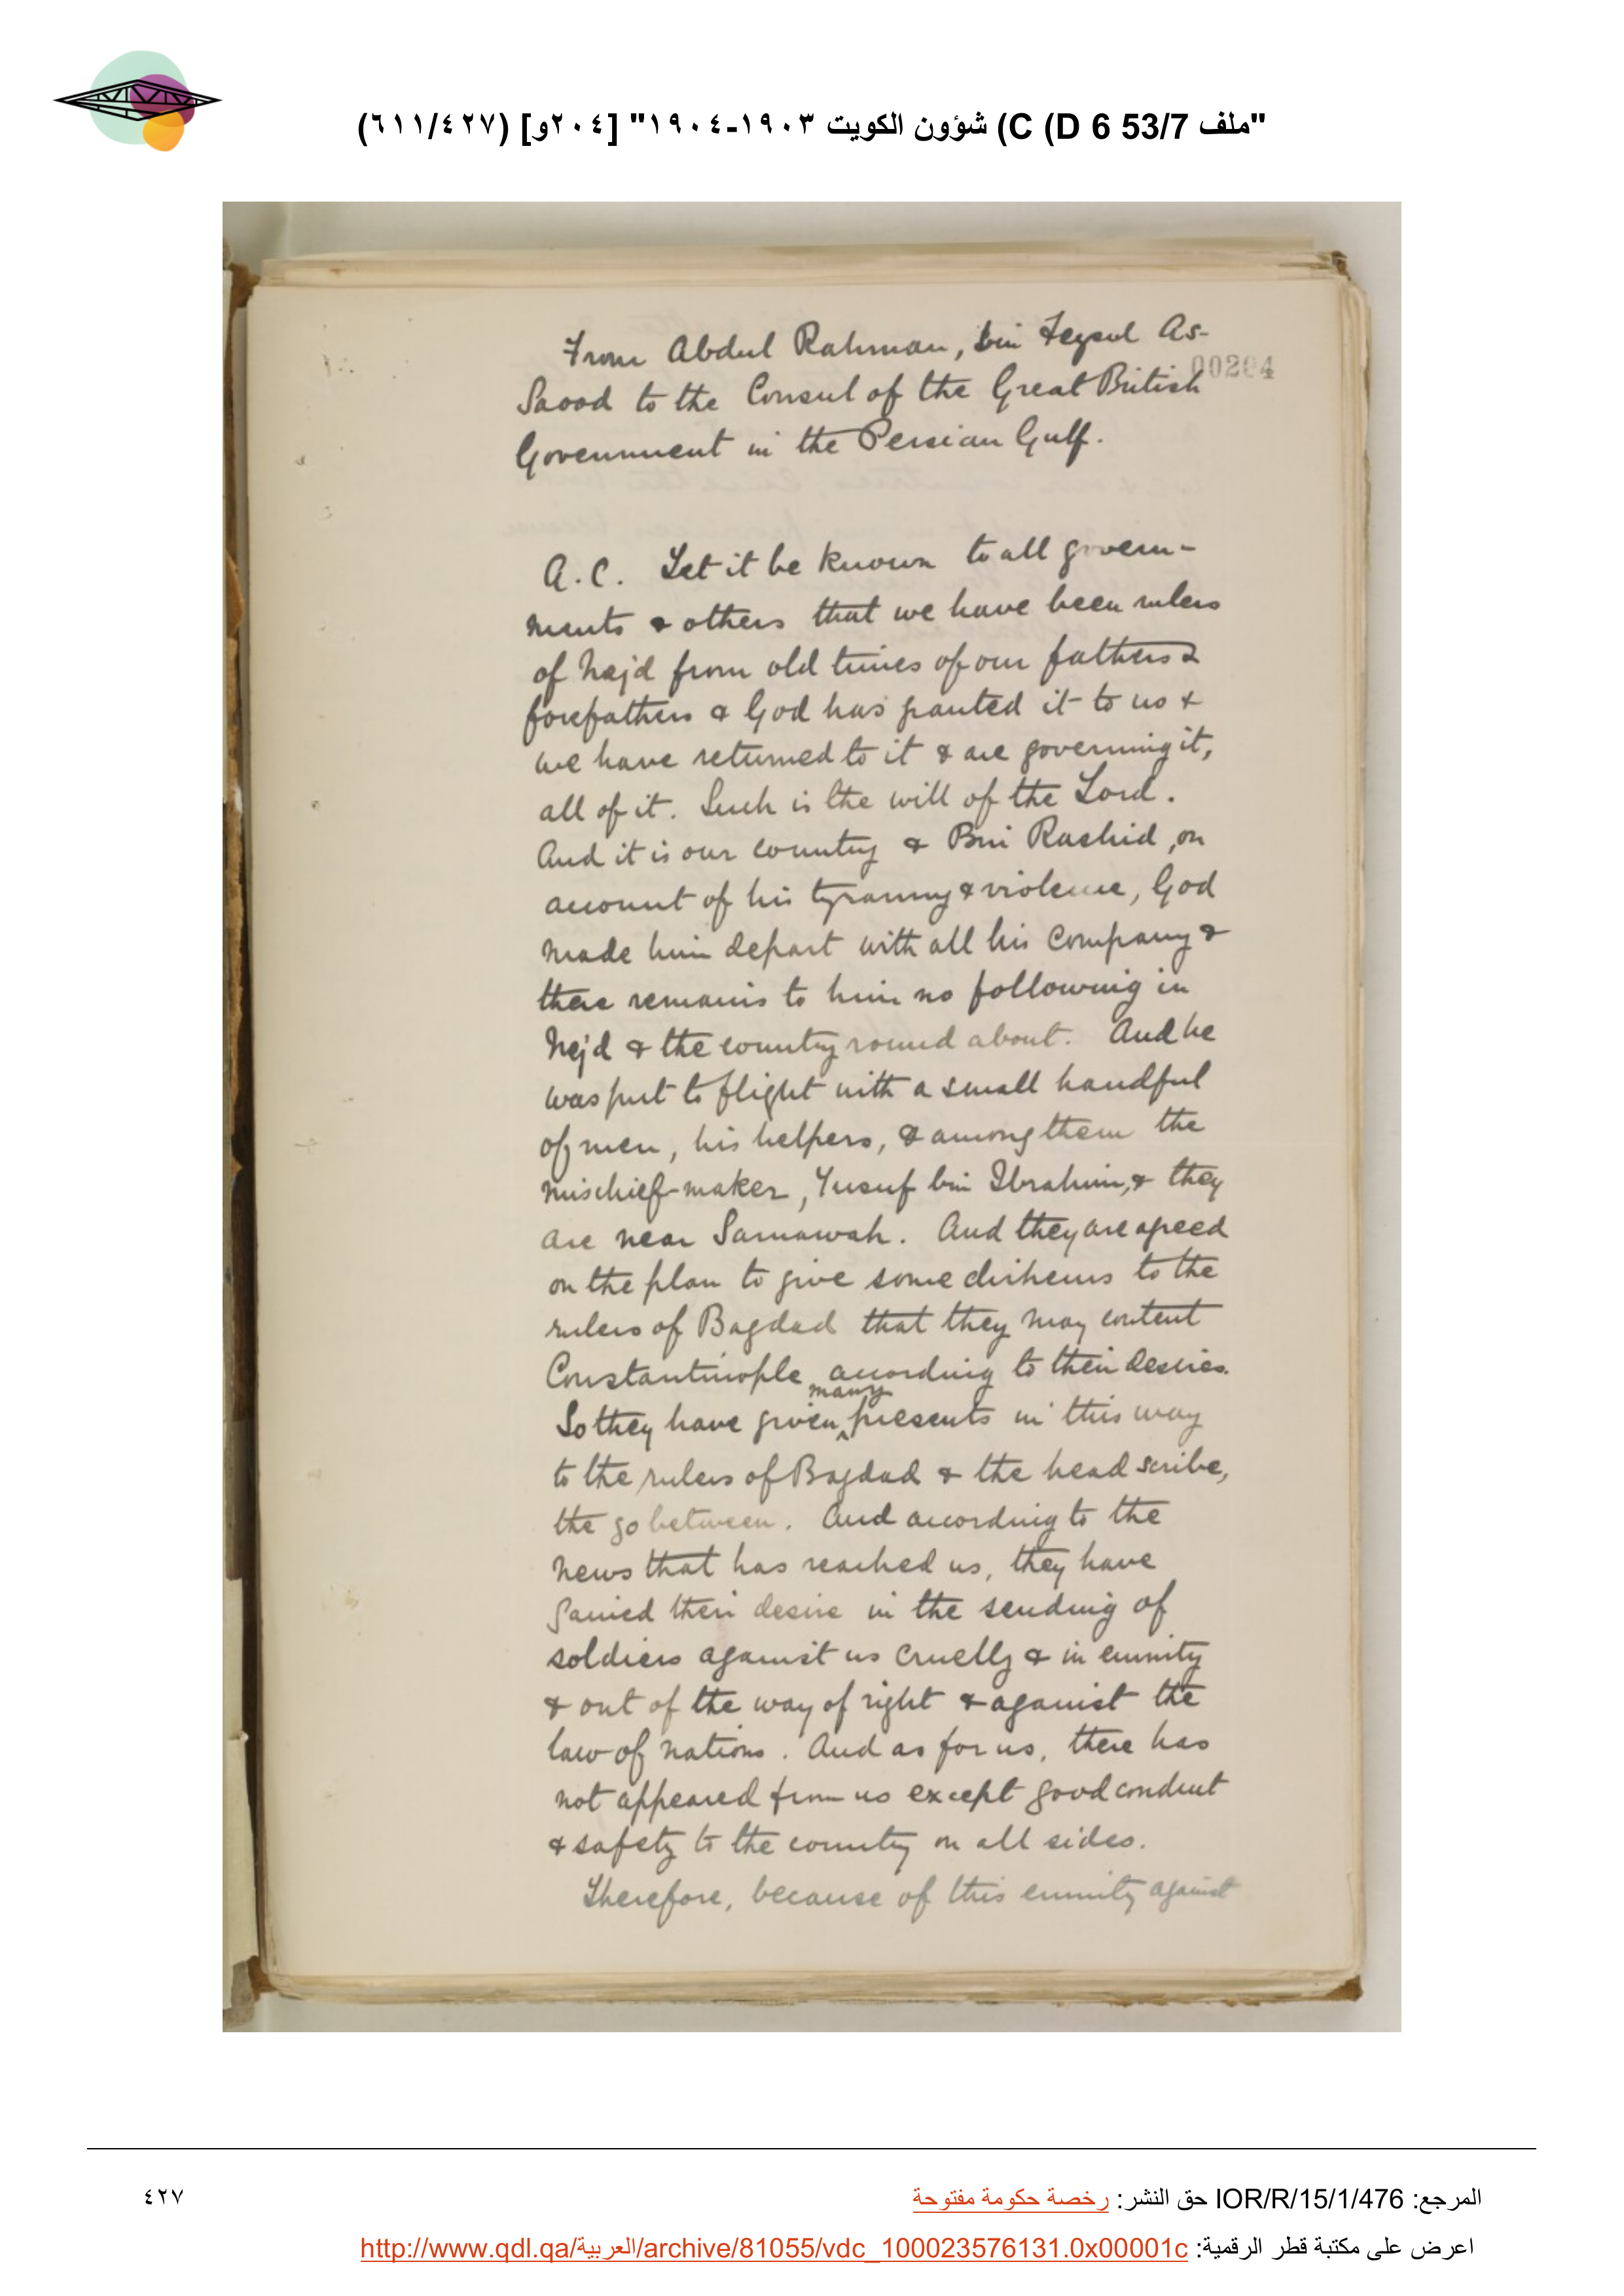 "ملف 53/7 C (D 6) شؤون الكويت ١٩٠٣-١٩٠٤" [٢٠٤و] (٦١١/٤٢٧)
00204
From Abdul Rahman, bin Feysul As-
Saood to the Consul of the Great British
Government in the Persian Gulf.
A.C. Let it be known to all govern-
ments & others that we have been rulers
of Nejd from old times of our fathers &
forefathers & God has granted it to us &
we have returned to it & are governing it,
all of it. Such is the will of the Lord.
And it is our country & Bin Rashid, on
account of his tyranny & violence, God
made him depart with all his company &
there remains to him no following in
Nejd & the country round about. And he
was put to flight with a small handful
of men, his helpers, & among them the
mischief-maker, Yusuf bin Ibrahim, & they
are near Samawah. And they are agreed
on the plan to give some dirhems to the
rulers of Bagdad that they may content
Constantinople according to their desires.
So they have given many presents in this way
to the rulers of Bagdad & the head scribe,
the go between. And according to the
news that has reached us, they have
gained their desire in the sending of
soldiers against us cruelly & in enmity
& out of the way of right & against the
law of nations. And as for us, there has
not appeared from us except good conduct
& safety to the country on all sides.
Therefore, because of this enmity against
المرجع: IOR/R/15/1/476 حق النشر: رخصة حكومة مفتوحة
٤٢٧
اعرض على مكتبة قطر الرقمية: http://www.qdl.qa/العربية/archive/81055/vdc_100023576131.0x00001c